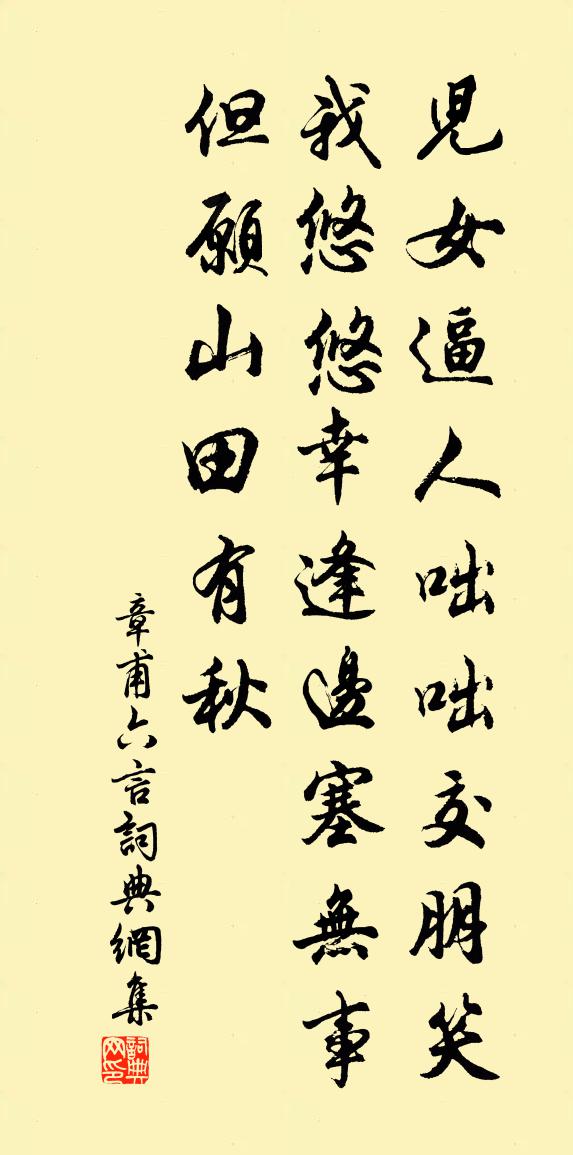 兒女逼人咄咄交朋笑
我悠悠幸逢邊塞無事
但願山田有秋
章甫六言詞典網集
詞典
网印